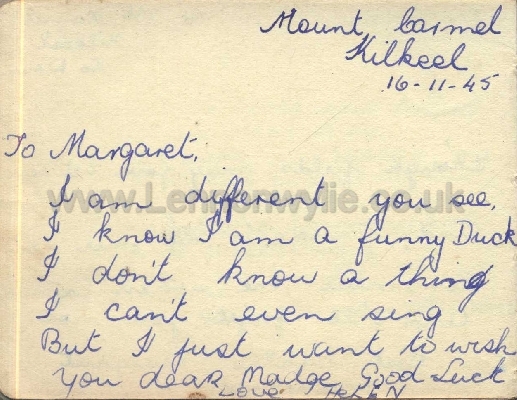 Mount Carmel
Kilkeel
16-11-45
To Margaret,
I am different you see,
www.Lennonwylie.co.uk
I know I am a funny Duck
I don't know a thing
I can't even sing
But I just want to wish
You dear Madge Good Luck
Love HELEN